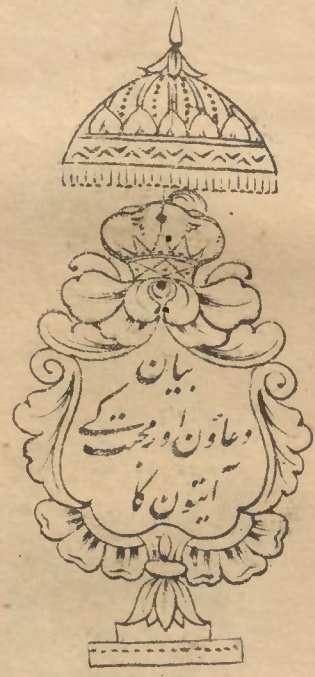 بیان
دعاؤن اور محبت کے
آیتون کا